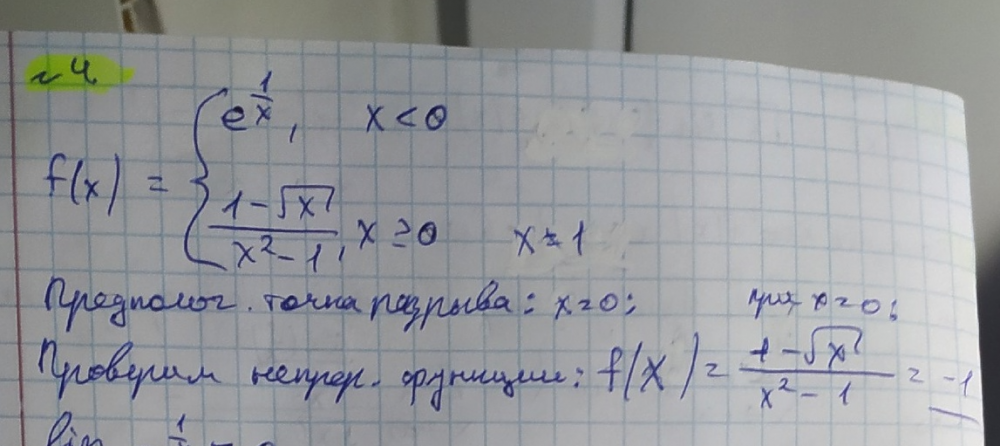 №4.
f(x) = { e^(1/x), x < 0
(1-√x)/(x²-1), x ≥ 0 x ≠ 1
Предполог. точка разрыва: x=0; при x=0;
Проверим непрер. функции: f(x) = (1-√x)/(x²-1) = -1
lim